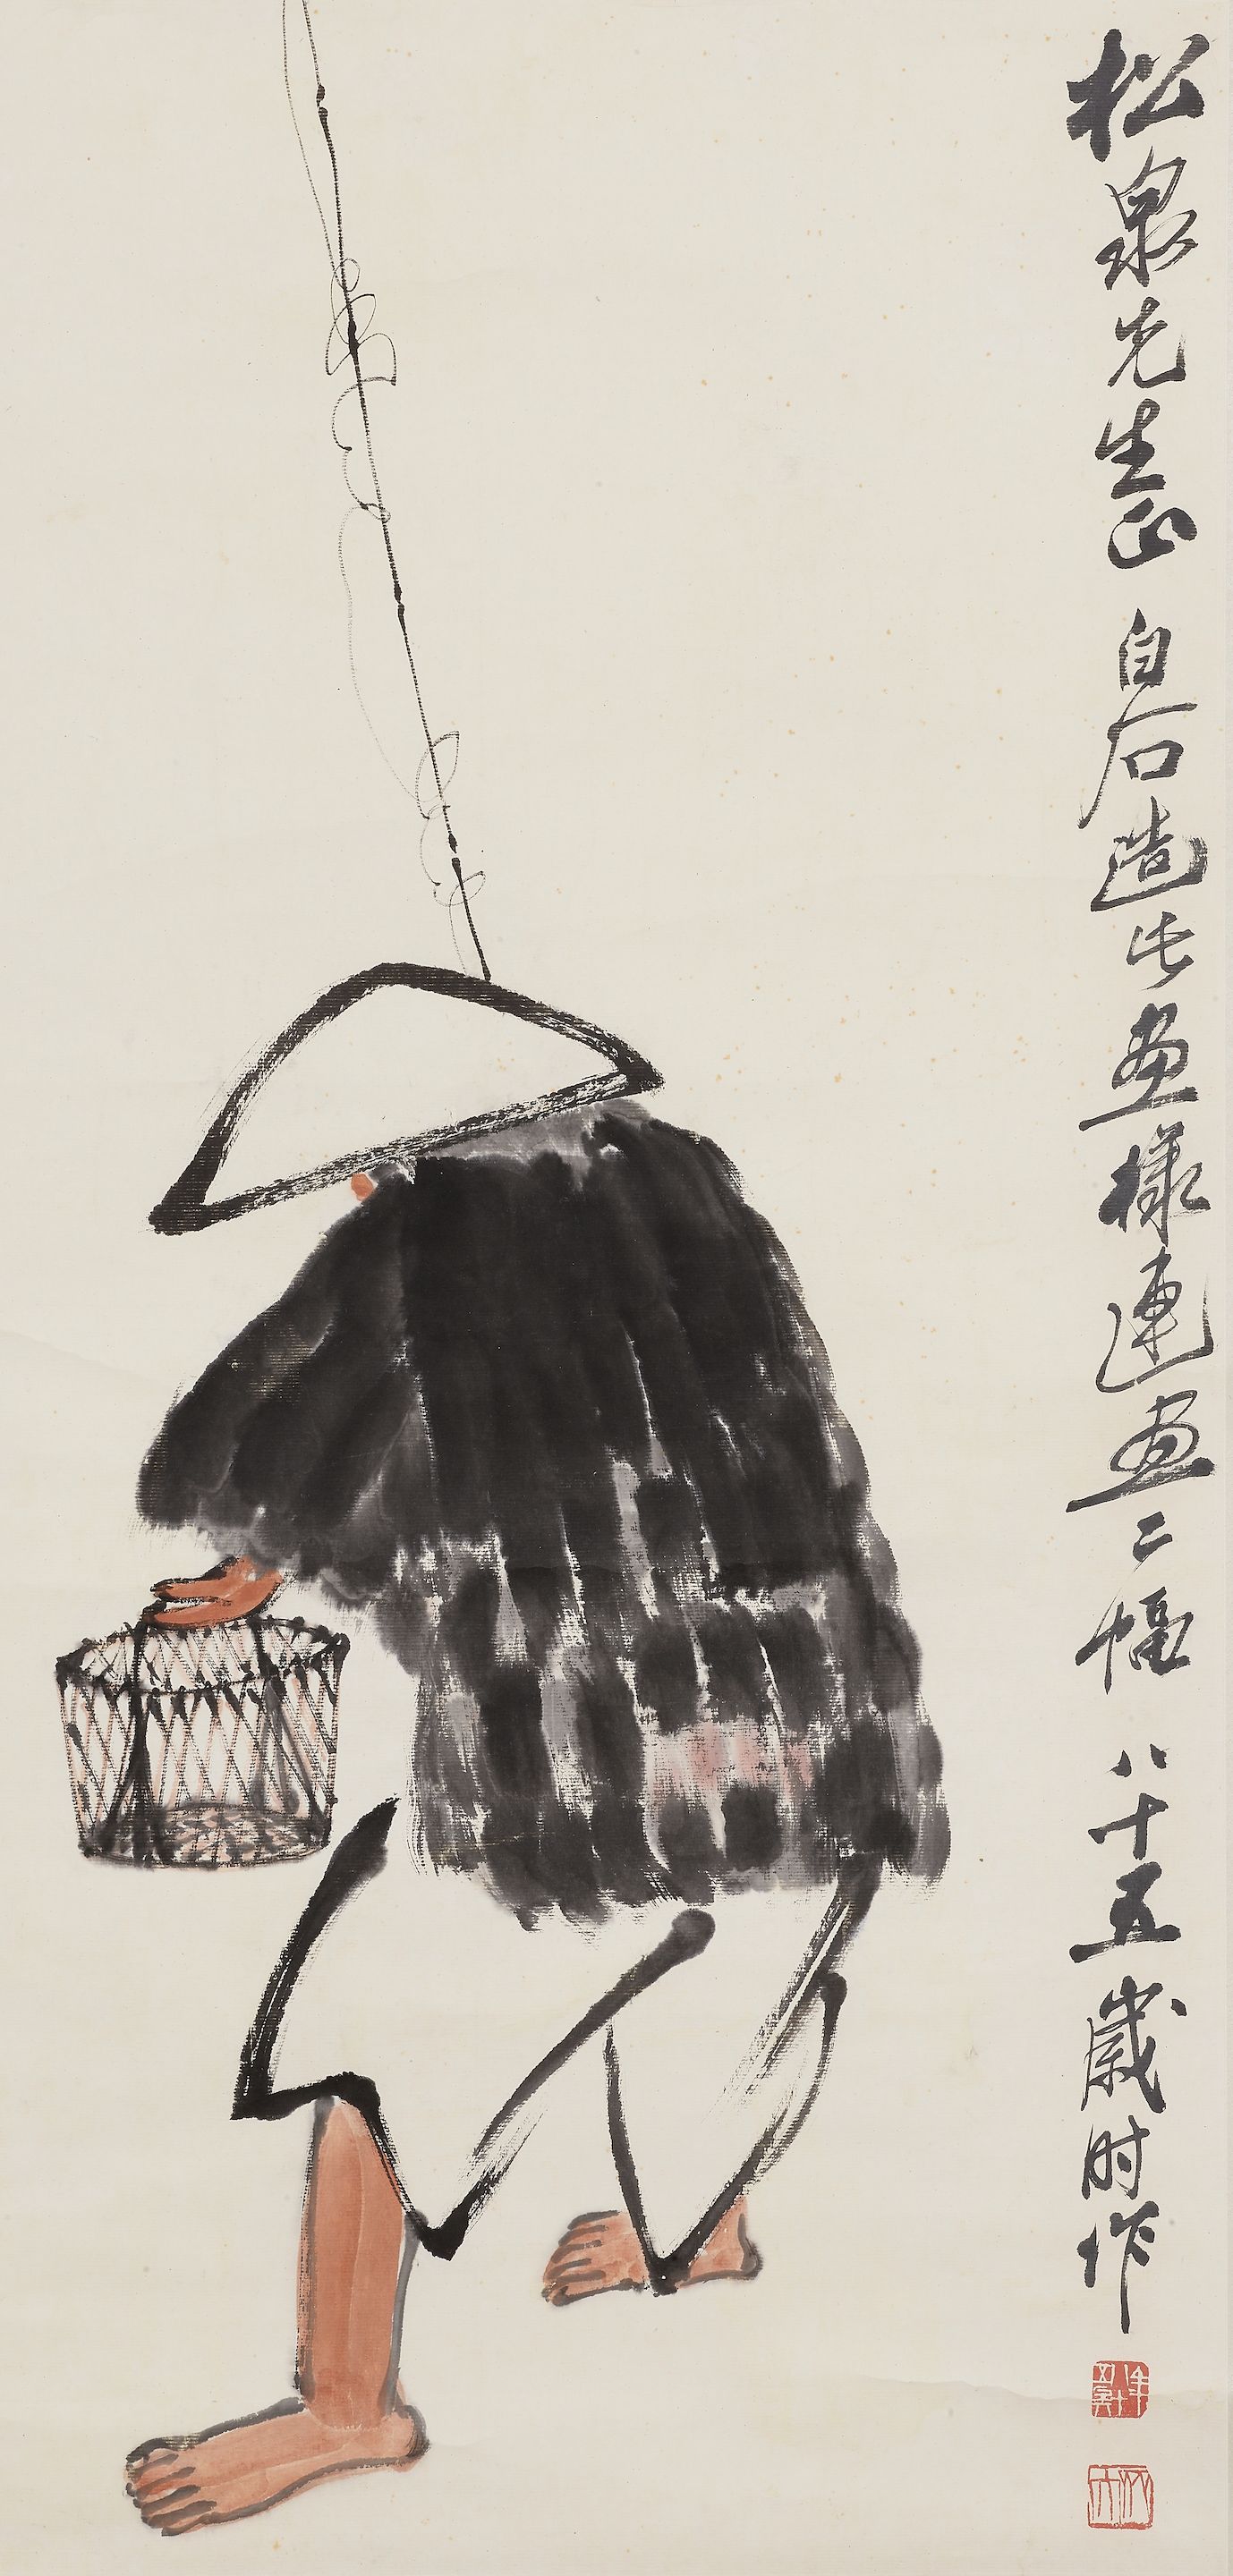 松泉先生正 白石造此画樣連画二幅 八十五歲时作